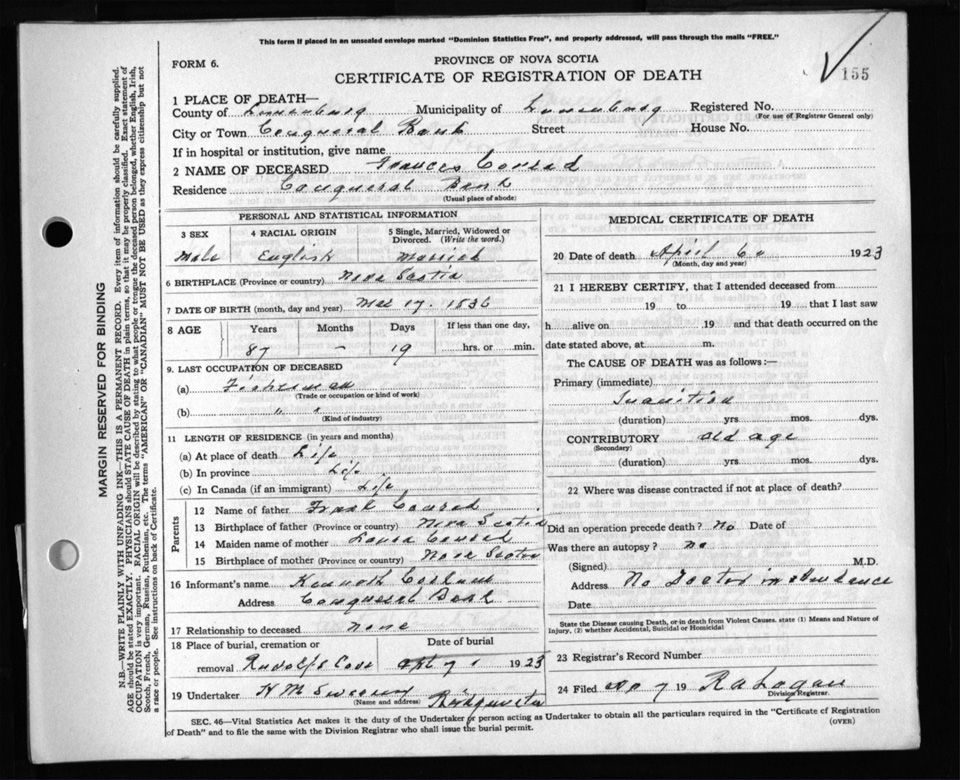 This form if placed in an unsealed envelope marked "Dominion Statistics Free", and properly addressed, will pass through the mails "FREE."
FORM 6.
PROVINCE OF NOVA SCOTIA
CERTIFICATE OF REGISTRATION OF DEATH
155
1 PLACE OF DEATH—
County of Lunenburg Municipality of Lunenburg Registered No.
(For use of Registrar General only)
City or Town Conqueral Bank Street House No.
If in hospital or institution, give name
2 NAME OF DECEASED Frances Conrad
Residence Conqueral Bank
(Usual place of abode)
PERSONAL AND STATISTICAL INFORMATION
3 SEX 4 RACIAL ORIGIN 5 Single, Married, Widowed or Divorced. (Write the word.)
Male English Married
6 BIRTHPLACE (Province or country) Nova Scotia
7 DATE OF BIRTH (month, day and year) 17. 1836
8 AGE Years Months Days If less than one day,
87 – 19 hrs. or min.
9. LAST OCCUPATION OF DECEASED
(a) Fisherman
(Trade or occupation or kind of work)
(b) " "
(Kind of industry)
11 LENGTH OF RESIDENCE (in years and months)
(a) At place of death Life
(b) In province Life
(c) In Canada (if an immigrant) Life
Parents
12 Name of father Frank Conrad
13 Birthplace of father (Province or country) Nova Scotia
14 Maiden name of mother Laura Conrad
15 Birthplace of mother (Province or country) Nova Scotia
16 Informant's name Kenneth
Address Conqueral Bank
17 Relationship to deceased None
18 Place of burial, cremation or removal Rudolfs Cove
Date of burial 7 1923
19 Undertaker H M Sweeney Bridgewater
(Name and address)
MEDICAL CERTIFICATE OF DEATH
20 Date of death April 6 1923
(Month, day and year)
21 I HEREBY CERTIFY, that I attended deceased from
19 to 19 that I last saw
h alive on 19 and that death occurred on the
date stated above, at m.
The CAUSE OF DEATH was as follows:—
Primary (immediate)
Inanition
(duration) yrs mos. dys.
CONTRIBUTORY old age
(Secondary)
(duration) yrs mos. dys.
22 Where was disease contracted if not at place of death?
Did an operation precede death? no Date of
Was there an autopsy? no
(Signed) M.D.
Address No Doctor in attendance
Date
State the Disease causing Death, or in death from Violent Causes. state (1) Means and Nature of Injury, (2) whether Accidental, Suicidal or Homicidal
23 Registrar's Record Number
24 Filed 7 19 R A Logan
Division Registrar.
SEC. 46—Vital Statistics Act makes it the duty of the Undertaker or person acting as Undertaker to obtain all the particulars required in the "Certificate of Registration
of Death" and to file the same with the Division Registrar who shall issue the burial permit.
(OVER)
MARGIN RESERVED FOR BINDING
N.B.—WRITE PLAINLY WITH UNFADING INK—THIS IS A PERMANENT RECORD. Every item of information should be carefully supplied.
AGE should be stated EXACTLY. PHYSICIANS should STATE CAUSE OF DEATH in plain terms, so that it may be properly classified. Exact statement of
OCCUPATION is very important. RACIAL ORIGIN will be described by stating to what people or tongue the deceased person belonged, whether English, Irish,
Scotch, French, German, Russian, Ruthenian, etc. The terms "AMERICAN" OR "CANADIAN" MUST NOT BE USED as they express citizenship but not
a race or people. See instructions on back of Certificate.